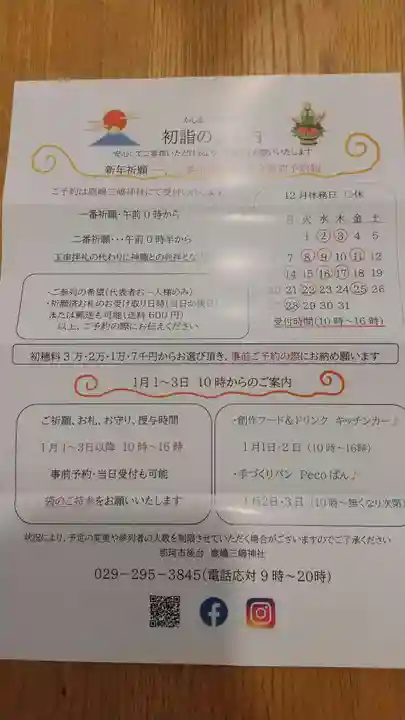 初詣の
新年祈願
ご予約は鹿嶋三嶋神社にて受付
一番祈願・午前0時から
二番祈願・・・午前0時半から
玉串拝礼の代わりに神職との
・ご参列の希望(代表者お一人様のみ)
・祈願済お札のお受け取り日時(当日か後日)
または郵送も可能(送料600円)
以上、ご予約の際にお伝えください
12月休務日
火 水 木 金 土
1 2 3 4 5
7 8 9 10 11 12
14 15 16 17 18 19
20 21 22 23 24 25 26
27 28 29 30 31
受付時間(10時~16時)
初穂料3万・2万・1万・7千円からお選び頂き、事前ご予約の際にお納め願います
1月1~3日 10時からのご案内
ご祈願、お札、お守り、授与時間
1月1~3日以降 10時~16時
事前予約・当日受付も可能
袋のご持参をお願いいたします
・創作フード&ドリンク キッチンカー♪
1月1日・2日(10時~16時)
・手づくりパン Pecoぱん♪
1月2日・3日(10時~無くなり次第)
状況により、予定の変更や参列者の人数を制限させていただく場合がございますのでご了承ください
那珂市後台 鹿嶋三嶋神社
029-295-3845(電話応対9時~20時)